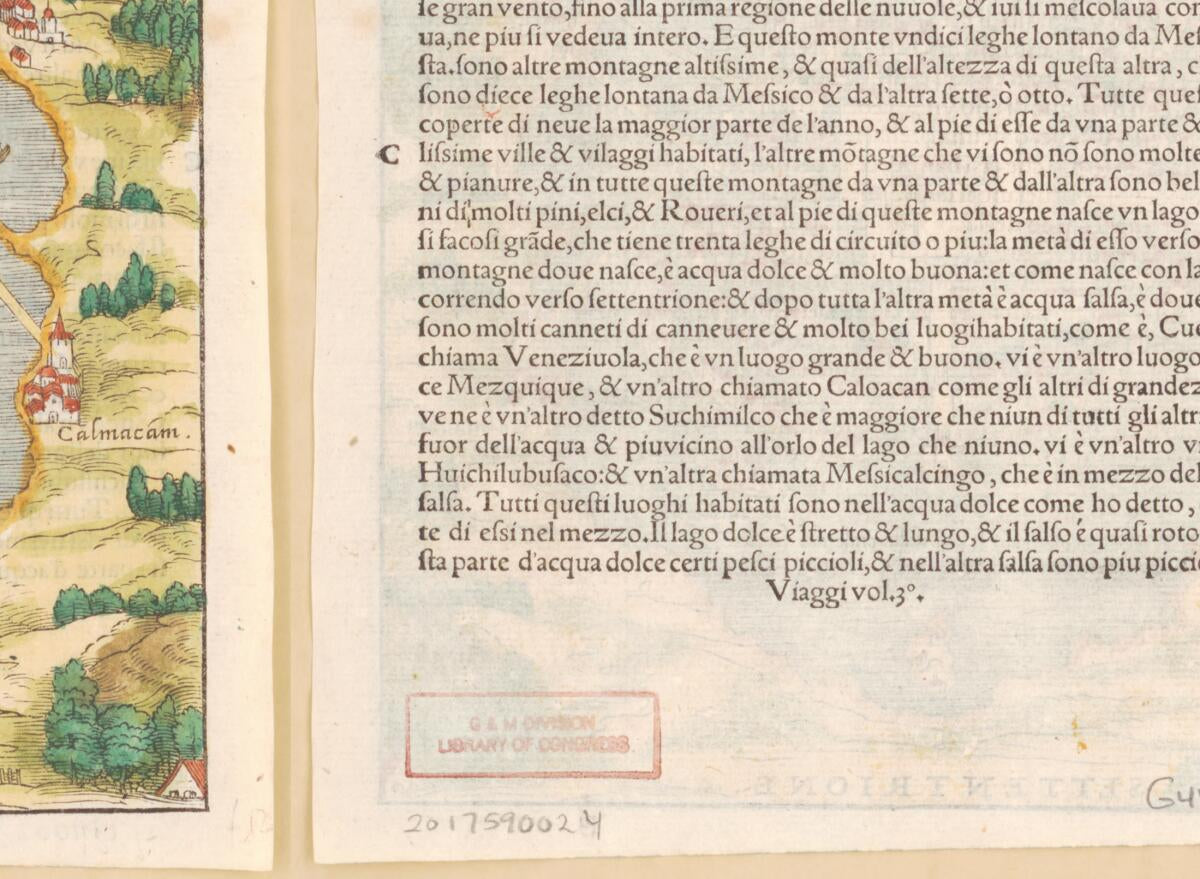 Calmacam.
le gran vento,fino alla prima regione delle nuuole,& iui si mescolaua con
ua,ne piu si vedeua intero. E questo monte vndici leghe lontano da Mes
sta.sono altre montagne altissime, & quasi dell'altezza di questa altra, c
sono diece leghe lontana da Messico & da l'altra sette,ò otto. Tutte ques
coperte di neue la maggior parte de l'anno, & al pie di esse da vna parte &
C lissime ville & vilaggi habitati, l'altre mōtagne che vi sono nō sono molte
& pianure,& in tutte queste montagne da vna parte & dall'altra sono bel
ni di molti pini,elci,& Roueri,et al pie di queste montagne nasce vn lago
si facosi grāde,che tiene trenta leghe di circuito o piu:la metà di esso verso
montagne doue nasce,è acqua dolce & molto buona:et come nasce con la
correndo verso settentrione:& dopo tutta l'altra metà è acqua salsa,è doue
sono molti canneti di canneuere & molto bei luogihabitati,come è, Cu
chiama Veneziuola,che è vn luogo grande & buono. vi è vn'altro luogo
ce Mezquique, & vn'altro chiamato Caloacan come gli altri di grandez
ve ne è vn'altro detto Suchimilco che è maggiore che niun di tutti gli altri
fuor dell'acqua & piuvicino all'orlo del lago che niuno. vi è vn'altro vi
Huichilubusaco:& vn'altra chiamata Messicalcingo, che è in mezzo del
salsa. Tutti questi luoghi habitati sono nell'acqua dolce come ho detto,
te di essi nel mezzo.Il lago dolce è stretto & lungo,& il salso é quasi roto
sta parte d'acqua dolce certi pesci piccioli,& nell'altra salsa sono piu piccio
Viaggi vol.3°.
G & M DIVISION
LIBRARY OF CONGRESS
SETTENTRIONE
2017590024